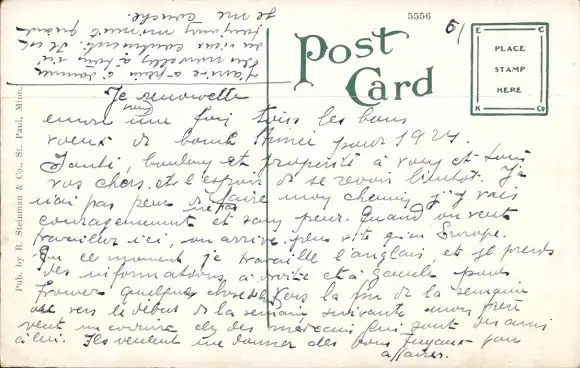 5556
5/
Post
Card
PLACE
STAMP
HERE
E C
K Co
Pub. by R. Steinman & Co., St. Paul, Minn.
Je renouvelle
encore une fois tous les bons
voeux de bonne Année pour 1924.
Santé, bonheur et prospérité à vous et tous
vos chers, et l'espoir de se revoir bientôt. Je
n'ai pas peur de ne pas faire mon chemin, j'y vais
courageusement et sans peur. Quand on veut
travailler ici, on arrive plus vite qu'en Europe.
En ce moment je travaille l'anglais, et je prends
des informations à droite et à gauche pour
trouver quelque chose. Vers la fin de la semaine
ou vers le début de la semaine suivante mon frère
veut me conduire chez des médecins qui sont des amis
à lui. Ils veulent me donner des bons tuyaux pour
affaires.
J'arrive à peine à donner
des nouvelles à
du vieux continent. Il est
minuit quand
je me couche.